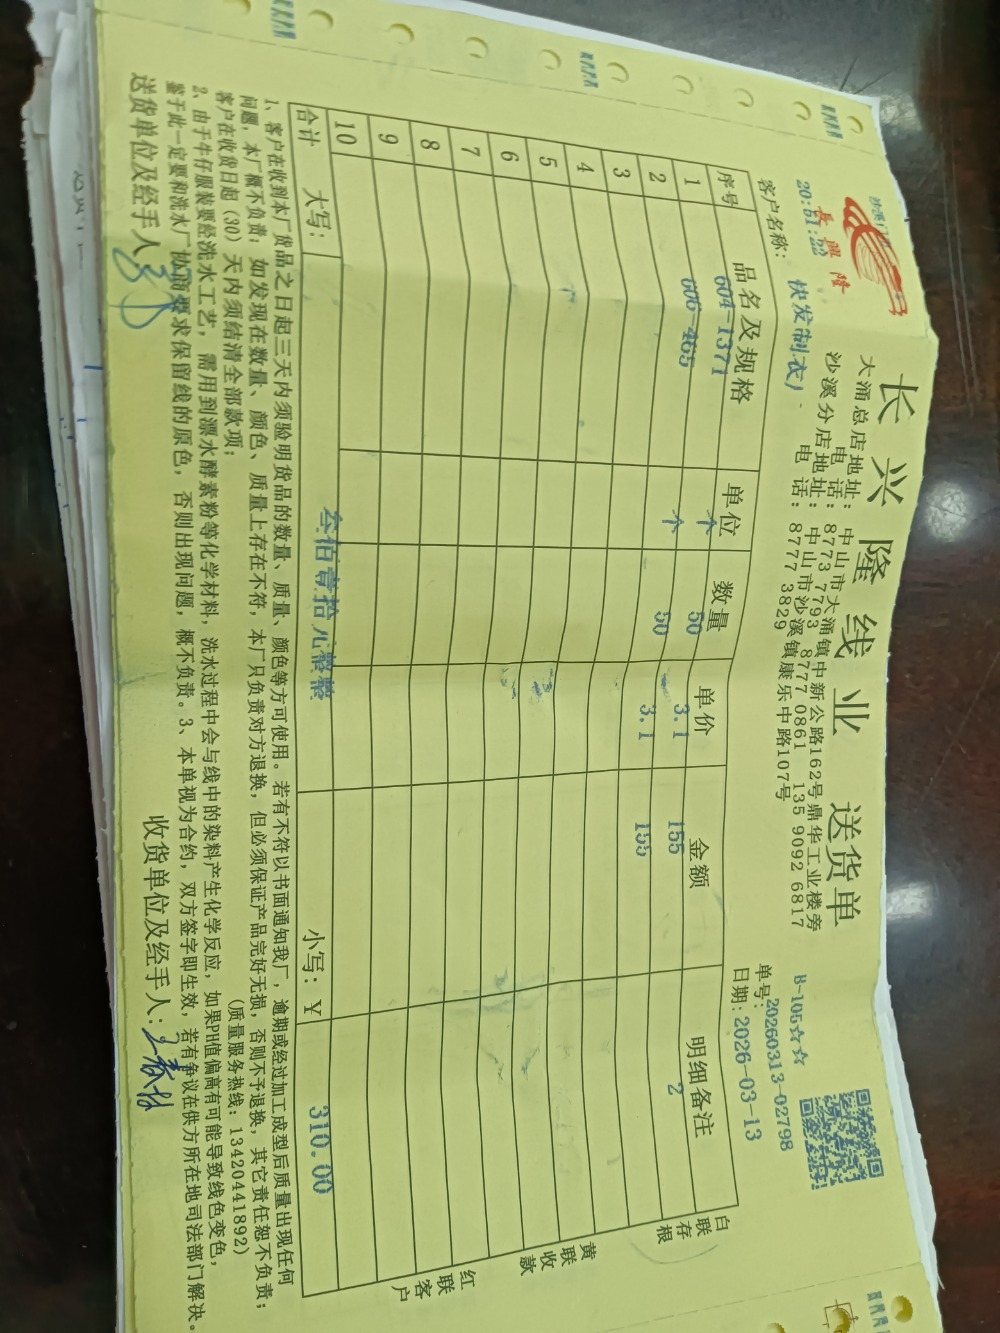 长兴隆线业 送货单
長興隆
20:51:22
大涌总店地址: 中山市大涌镇中新公路162号鼎华工业楼旁
电话: 8773 7793 8777 0861 135 9092 6817
沙溪分店地址: 中山市沙溪镇康乐中路107号
电话: 8777 3829
B-105☆☆
单号: 20260313-02798
客户名称: 快发制衣
日期: 2026-03-13
序号 品名及规格 单位 数量 单价 金额 明细备注
1 604-1371 个 50 3.1 155 2
2 606-465 个 50 3.1 155
3
4
5
6
7
8
9
10
合计 大写: 叁佰壹拾元整 小写: ¥ 310.00
白联存根
黄联收款
红联客户
1、客户在收到本厂货品之日起三天内须验明货品的数量、质量、颜色等方可使用。若有不符以书面通知我厂，逾期或经过加工成型后质量出现任何
问题，本厂概不负责；如发现在数量、颜色、质量上存在不符，本厂只负责对方退换，但必须保证产品完好无损，否则不予退换，其它责任恕不负责；
客户在收货日起(30)天内须结清全部款项； (质量服务热线: 13420441892)
2、由于牛仔服装要经洗水工艺，需用到漂水酵素粉等化学材料，洗水过程中会与线中的染料产生化学反应，如果PH值偏离有可能导致线色变色，
鉴于此一定要和洗水厂协商要求保留线的原色，否则出现问题，概不负责。3、本单视为合约，双方签字即生效，若有争议在供方所在地司法部门解决。
送货单位及经手人: 收货单位及经手人: